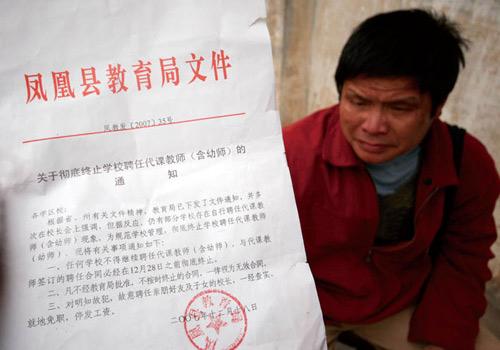 凤凰县教育局文件
凤教发【2007】35号
关于彻底终止学校聘任代课教师（含幼师）的
通　知
各学区校：
根据省、州有关文件精神，教育局已下发了文件通知，并多
次在校长会上强调，但据反应，仍有部分学校存在自行聘任代课教
师（含幼师）现象，为规范学校管理，彻底终止学校聘任代课教师
（幼师），现将有关事项通知如下：
一、任何学校不得继续聘任代课教师（含幼师），与代课教
师签订的聘任合同必经在12月28日之前彻底终止。
二、凡不经教育局批准，不按时终止的合同，一律视为无效合同。
三、对明知故犯，故意聘任亲朋好友及子女的校长，一经查实，
就地免职，停发工资。
二00七年十二月十八日